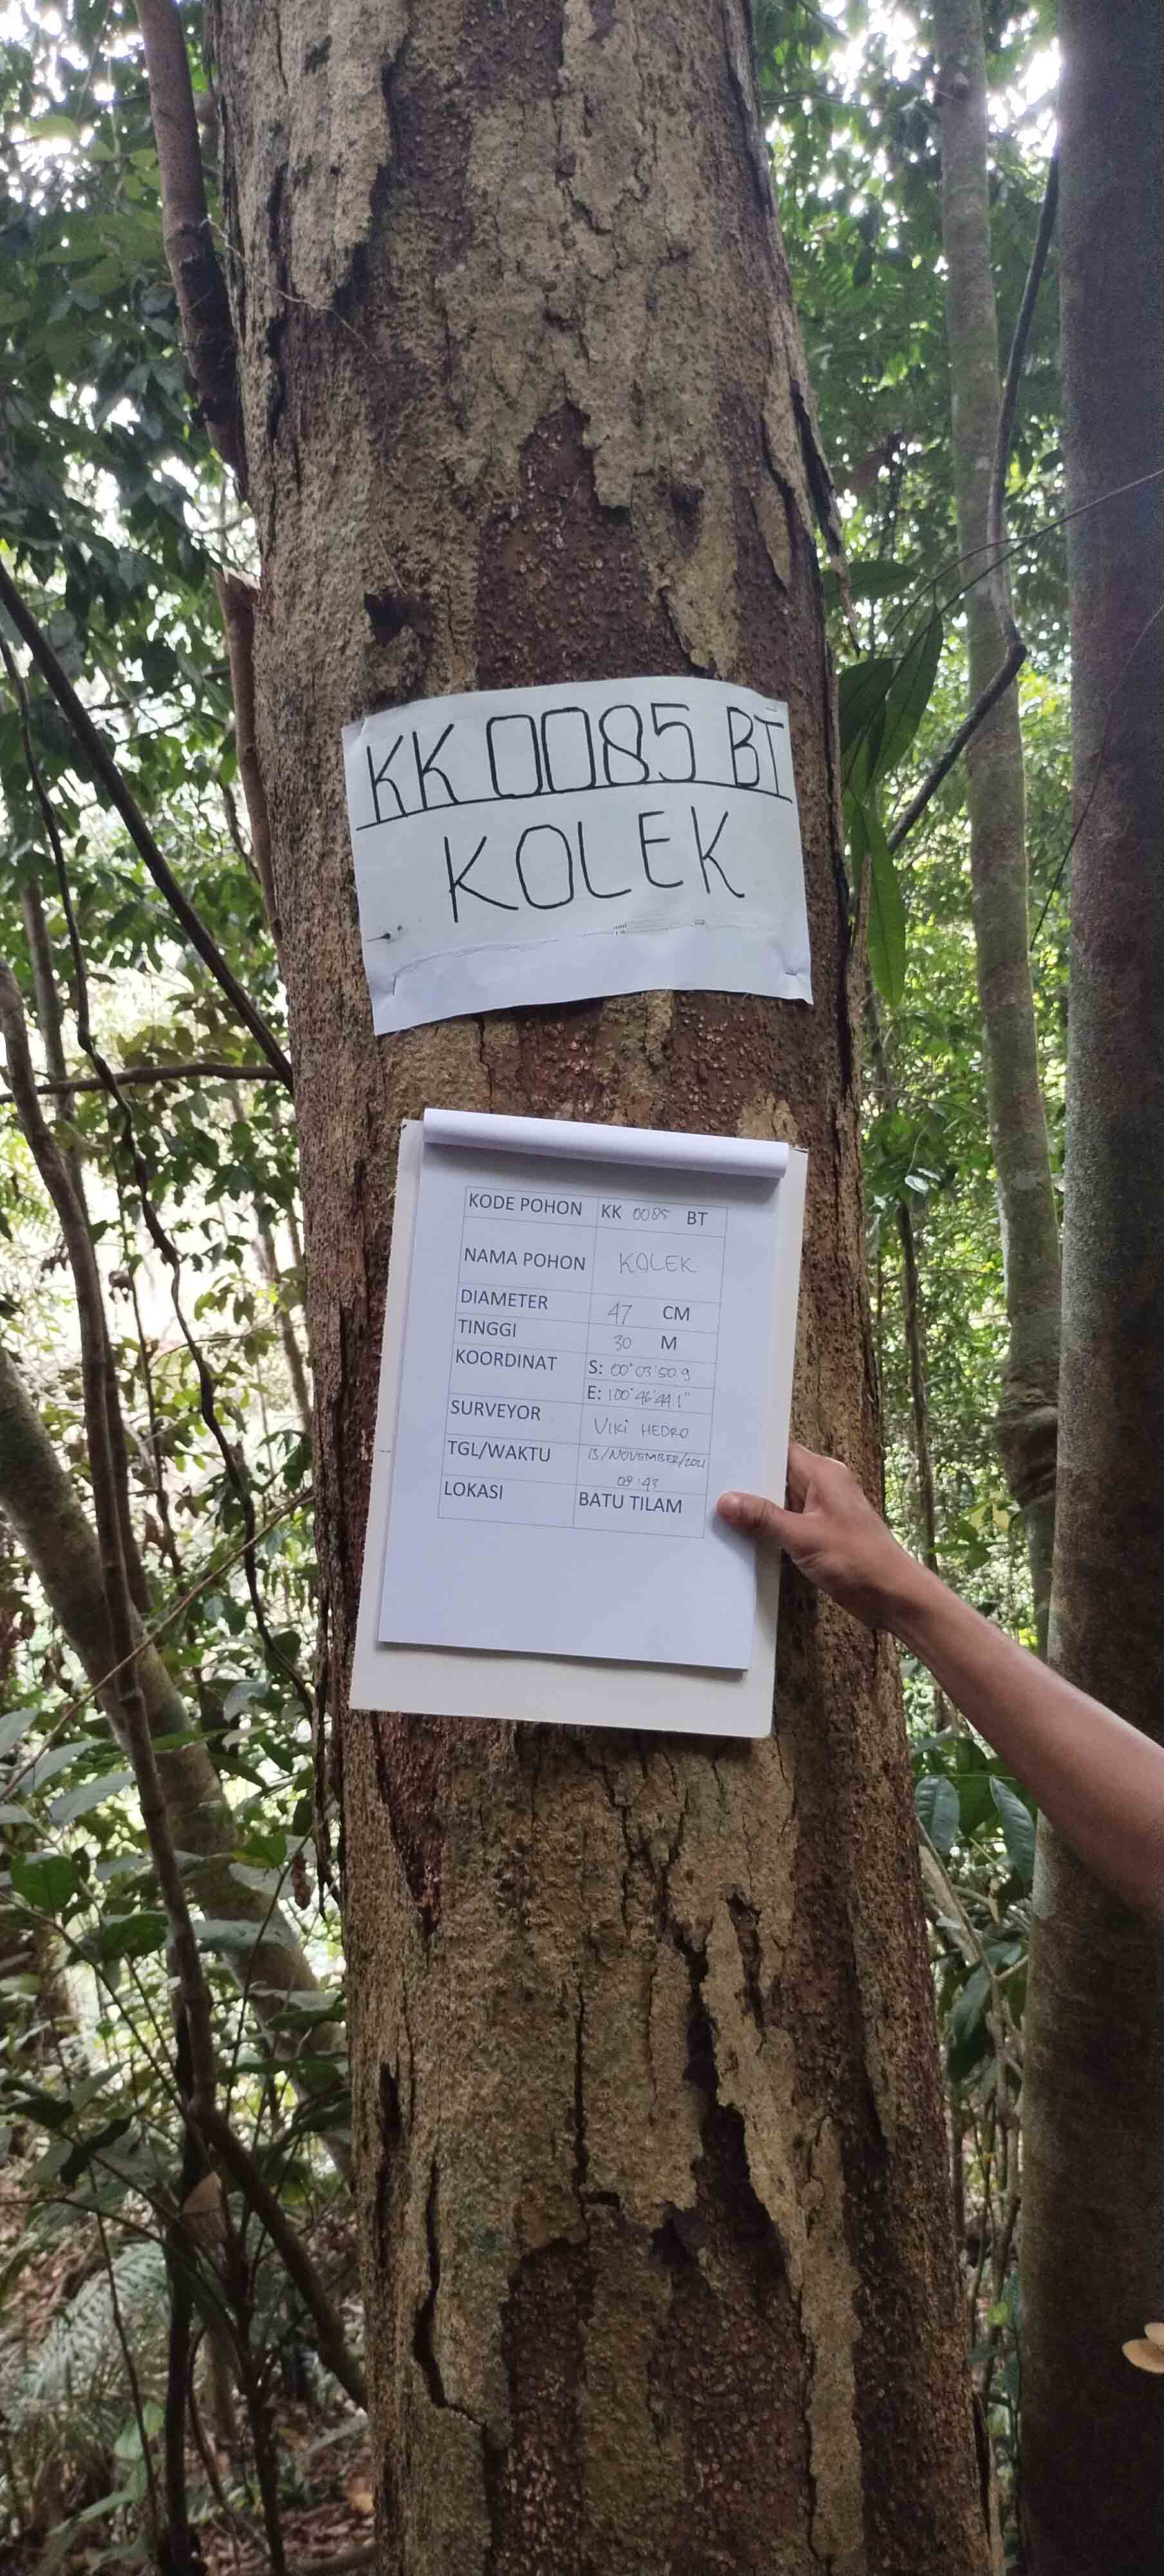 KK 0085 BT
KOLEK
KODE POHON KK 0085 BT
NAMA POHON KOLEK
DIAMETER 47 CM
TINGGI 30 M
KOORDINAT S: 00°03'50.9
E: 100°46'44.1"
SURVEYOR VIKI HEDRO
TGL/WAKTU 13/NOVEMBER/2021
09:43
LOKASI BATU TILAM